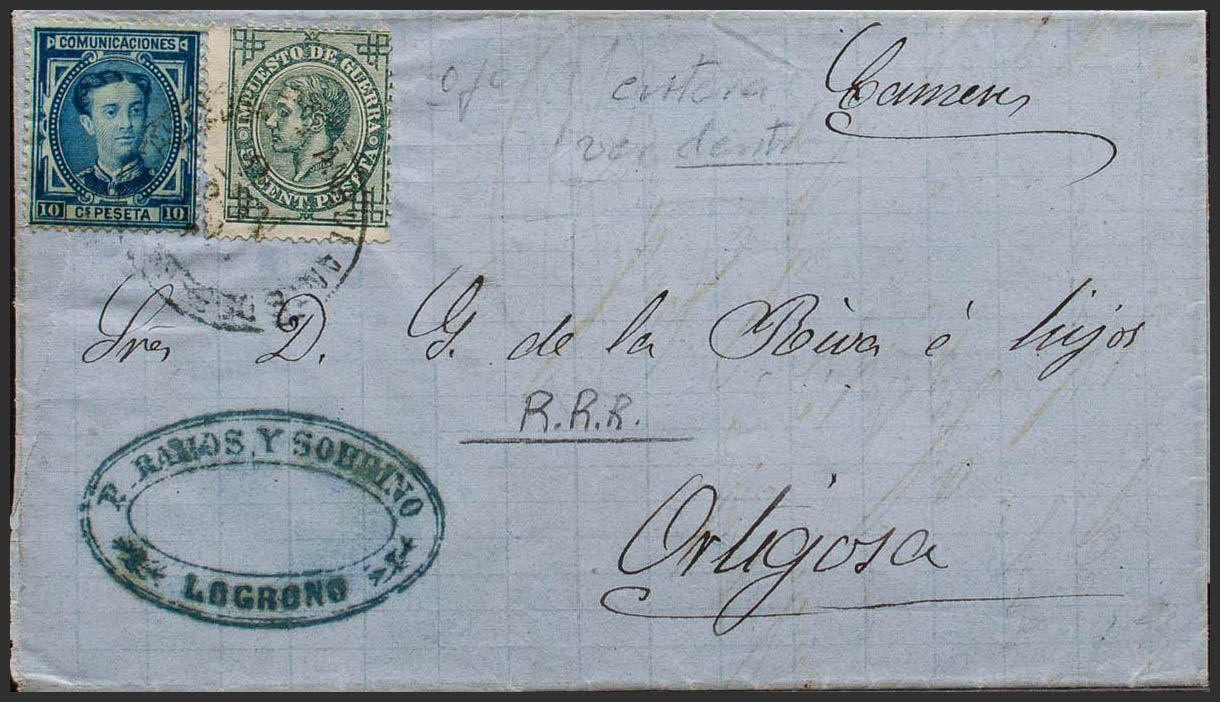 COMUNICACIONES
10 Cs PESETA 10
IMPUESTO DE GUERRA
5 CENT. PESETA
ojo
ver dentro
Cameros
Sres D. G. de la Riva é hijos
R.R.R.
P. RAMOS Y SOBRINO
LOGROÑO
Ortigosa